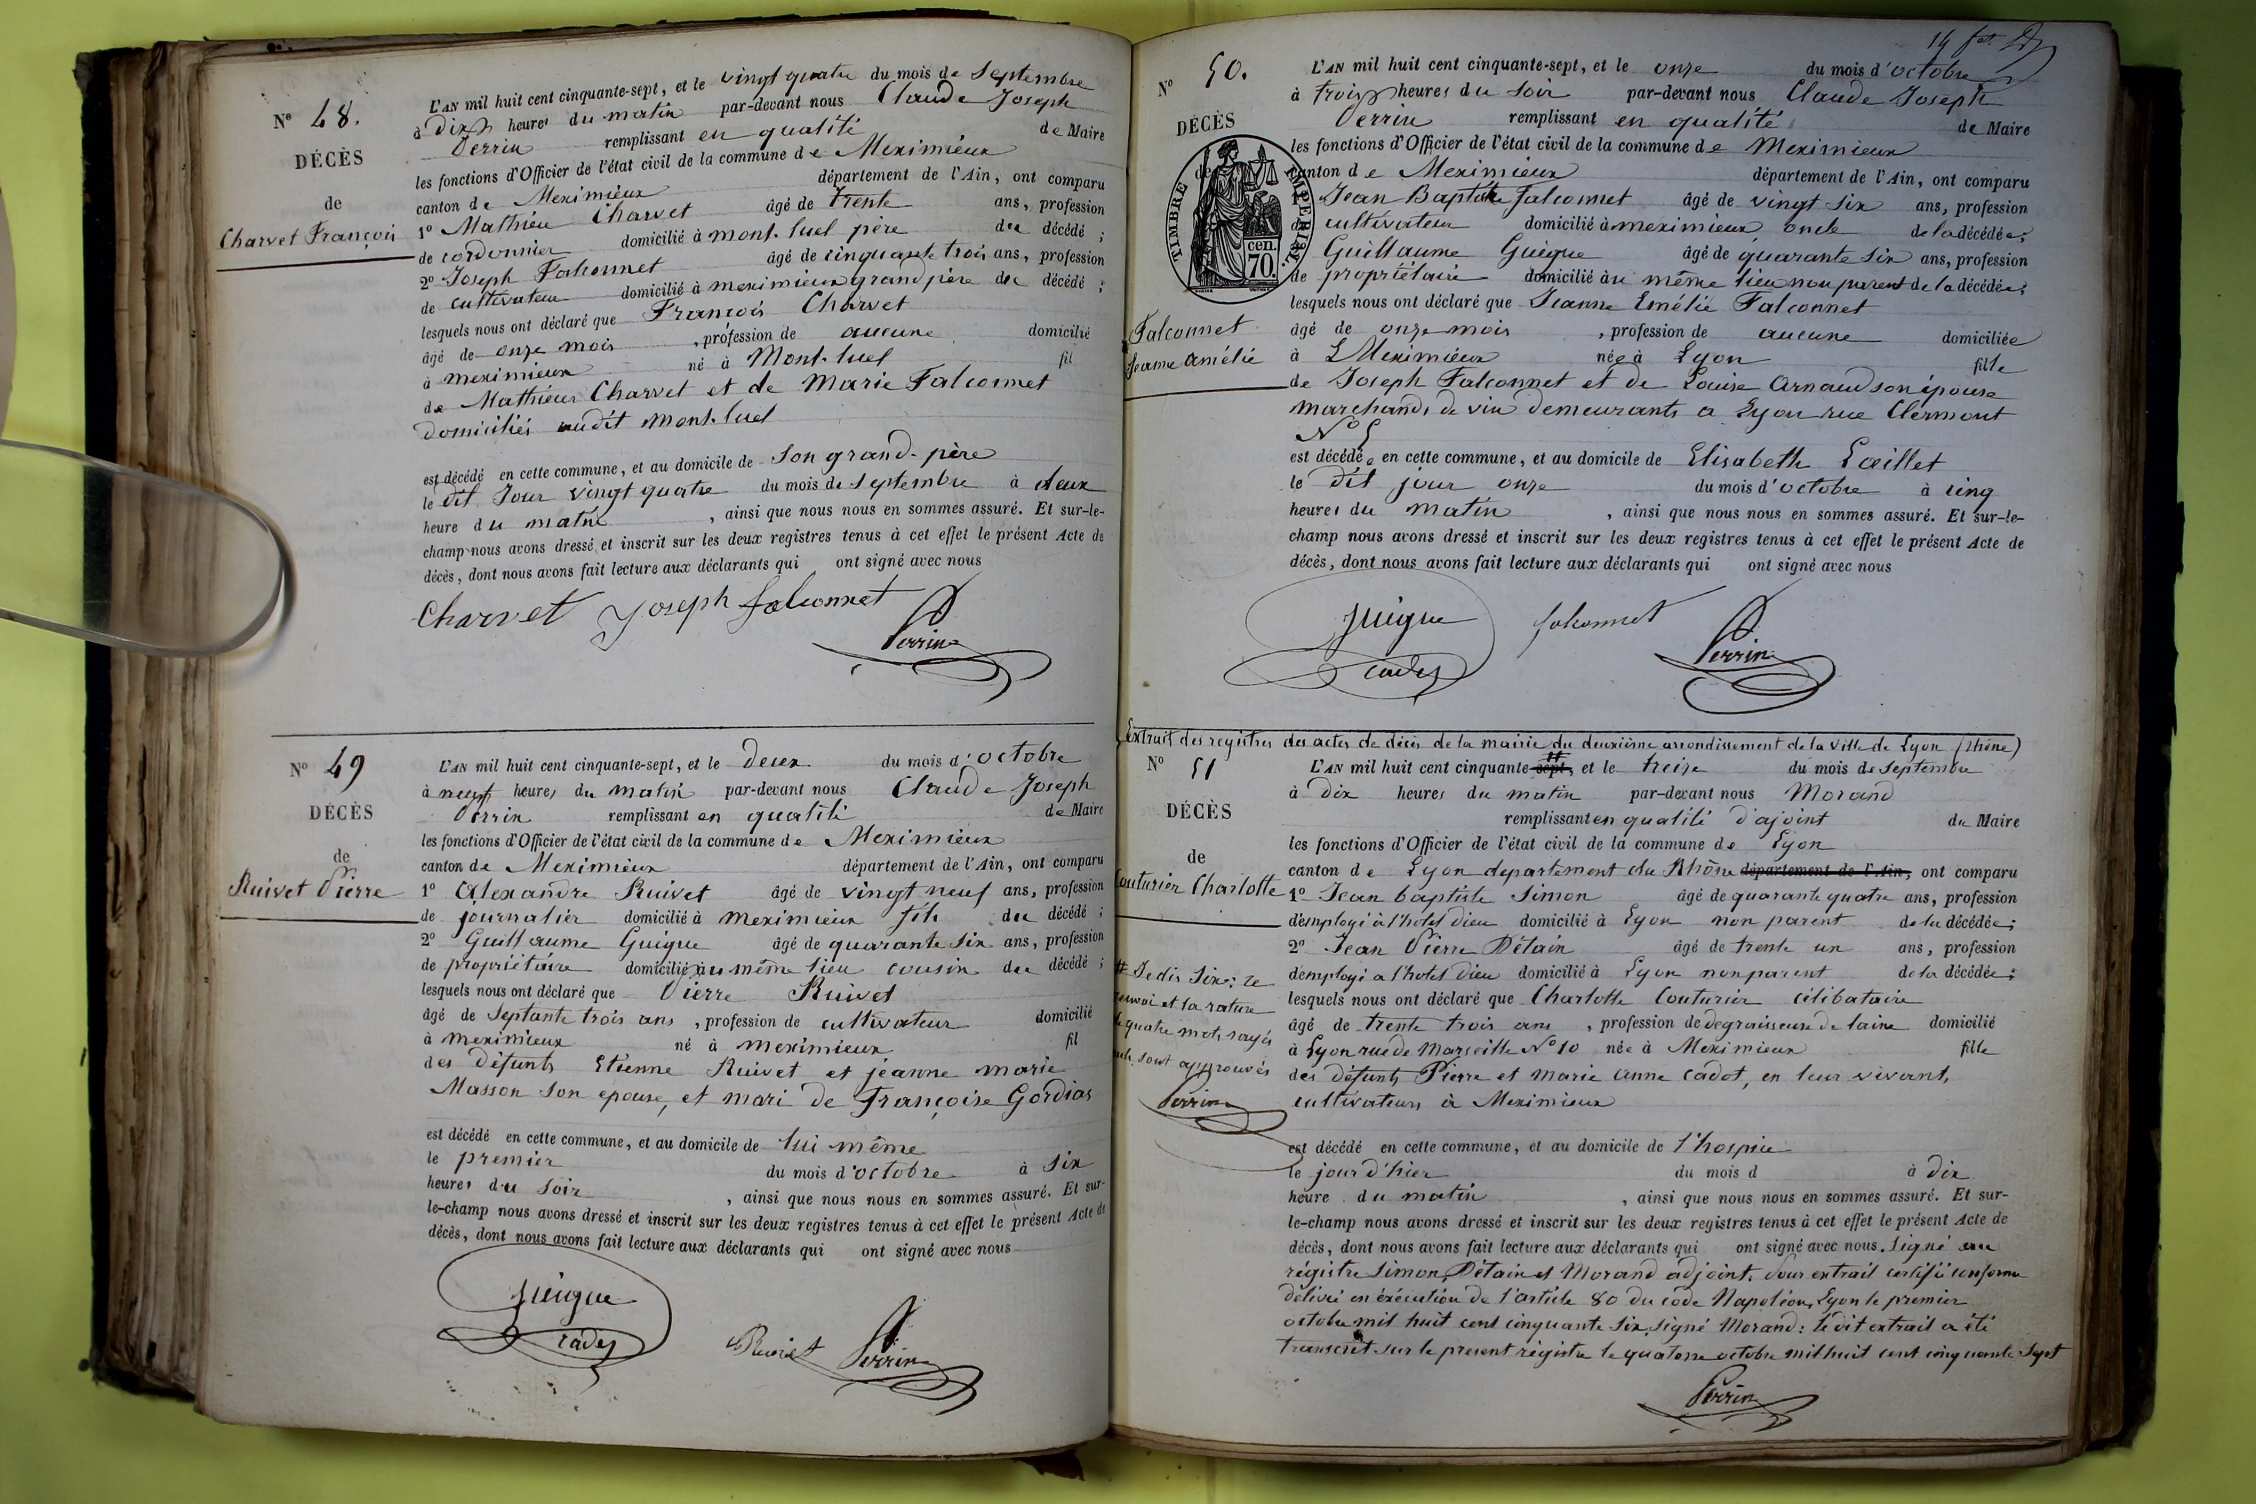 N° 48.
DÉCÈS
de
Charvet François
L'AN mil huit cent cinquante-sept, et le vingt quatre du mois de Septembre
à dix heures du matin par-devant nous Claude Joseph
Perrin remplissant en qualité de Maire
les fonctions d'Officier de l'état civil de la commune de Meximieux
canton de Meximieux département de l'Ain, ont comparu
1° Mathieu Charvet âgé de trente ans, profession
de cordonnier domicilié à mont-luel père du décédé ;
2° Joseph Falconnet âgé de cinquante trois ans, profession
de cultivateur domicilié à meximieux grand père du décédé ;
lesquels nous ont déclaré que François Charvet
âgé de onze mois , profession de aucune domicilié
à meximieux né à Mont-luel fil
de Mathieu Charvet et de Marie Falconnet
domiciliés audit Mont-luel
est décédé en cette commune, et au domicile de son grand-père
le dit Jour vingt quatre du mois de Septembre à deux
heure du matin , ainsi que nous nous en sommes assuré. Et sur-le-
champ nous avons dressé et inscrit sur les deux registres tenus à cet effet le présent Acte de
décès, dont nous avons fait lecture aux déclarants qui ont signé avec nous
Charvet Joseph falconnet
Perrin
N° 49
DÉCÈS
de
Ruivet Pierre
L'AN mil huit cent cinquante-sept, et le deux du mois d'octobre
à neuf heures du matin par-devant nous Claude Joseph
Perrin remplissant en qualité de Maire
les fonctions d'Officier de l'état civil de la commune de Meximieux
canton de Meximieux département de l'Ain, ont comparu
1° Alexandre Ruivet âgé de vingt neuf ans, profession
de journalier domicilié à meximieux fils du décédé ;
2° Guillaume Guigue âgé de quarante six ans, profession
de propriétaire domicilié au même lieu cousin du décédé ;
lesquels nous ont déclaré que Pierre Ruivet
âgé de Septante trois ans , profession de cultivateur domicilié
à meximieux né à meximieux fil
des défunts Etienne Ruivet et jeanne marie
Masson son epouse, et mari de Françoise Gordias
est décédé en cette commune, et au domicile de lui même
le premier du mois d'octobre à Six
heures du Soir , ainsi que nous nous en sommes assuré. Et sur-
le-champ nous avons dressé et inscrit sur les deux registres tenus à cet effet le présent Acte de
décès, dont nous avons fait lecture aux déclarants qui ont signé avec nous
guigue
cadet
Ruivet Perrin
14
N° 50.
DÉCÈS
de
TIMBRE IMPERIAL
cen.
70.
Falconnet
Jeanne amélie
L'AN mil huit cent cinquante-sept, et le onze du mois d'octobre
à trois heures du soir par-devant nous Claude Joseph
Perrin remplissant en qualité de Maire
les fonctions d'Officier de l'état civil de la commune de Meximieux
canton de Meximieux département de l'Ain, ont comparu
Jean Baptiste Falconnet âgé de vingt six ans, profession
cultivateur domicilié à meximieux oncle de la décédée ;
Guillaume Guigue âgé de quarante six ans, profession
de propriétaire domicilié au même lieu non parent de la décédée ;
lesquels nous ont déclaré que Jeanne Emélie Falconnet
âgé de onze mois , profession de aucune domiciliée
à Meximieux née à Lyon fille
de Joseph Falconnet et de Louise Arnaud son épouse
marchands de vin demeurants a Lyon rue Clermont
N° 5
est décédée en cette commune, et au domicile de Elisabeth Lœillet
le dit jour onze du mois d'octobre à cinq
heures du matin , ainsi que nous nous en sommes assuré. Et sur-le-
champ nous avons dressé et inscrit sur les deux registres tenus à cet effet le présent Acte de
décès, dont nous avons fait lecture aux déclarants qui ont signé avec nous
guigue falconnet
cadet Perrin
Extrait des registres des actes de décès de la mairie du deuxième arrondissement de la ville de Lyon (rhône)
N° 51
DÉCÈS
de
Couturier Charlotte
# Je dis Six: le
renvoi et la rature
de quatre mots rayés
nuls sont approuvés
Perrin
L'AN mil huit cent cinquante-sept, # et le treize du mois de Septembre
à Dix heures du matin par-devant nous Morand
remplissant en qualité d'ajoint du Maire
les fonctions d'Officier de l'état civil de la commune de Lyon
canton de Lyon departement du Rhône département de l'Ain, ont comparu
1° Jean baptiste Simon âgé de quarante quatre ans, profession
d'employé à l'hotel dieu domicilié à Lyon non parent de la décédée ;
2° Jean Pierre Détain âgé de trente un ans, profession
d'employé a l'hotel dieu domicilié à Lyon non parent de la décédée ;
lesquels nous ont déclaré que Charlotte Couturier célibataire
âgé de trente trois ans , profession de degraisseuse de laine domicilié
à Lyon rue de Marseille N° 10 née à Meximieux fille
des défunts Pierre et Marie anne Cadot, en leur vivant,
cultivateurs à Meximieux
est décédé en cette commune, et au domicile de l'hospice
le jour d'hier du mois d à dix
heure du matin , ainsi que nous nous en sommes assuré. Et sur-
le-champ nous avons dressé et inscrit sur les deux registres tenus à cet effet le présent Acte de
décès, dont nous avons fait lecture aux déclarants qui ont signé avec nous. Signé au
régistre Simon, Détain et Morand adjoint. Pour extrait certifié conforme
délivré en éxécution de l'article 80 du code Napoléon, Lyon le premier
octobre mil huit cent cinquante six, signé Morand: le dit extrait a été
transcrit sur le present régistre le quatorze octobre mil huit cent cinquante Sept
Perrin